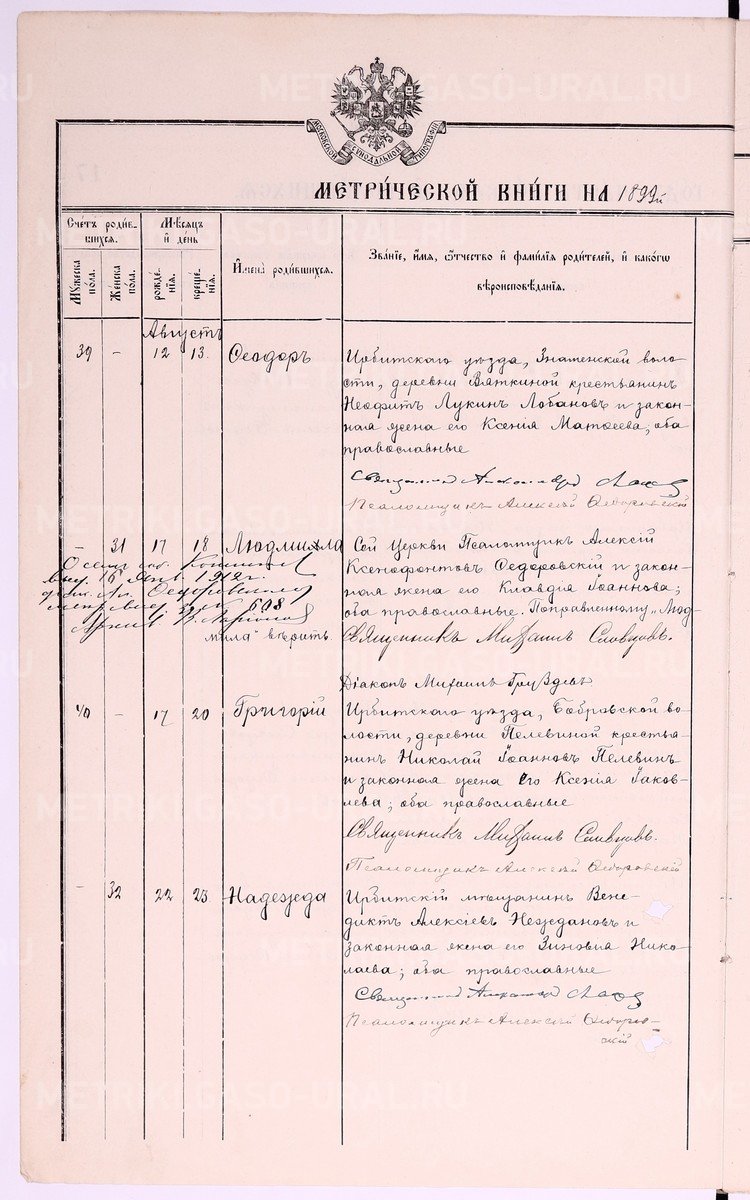 METRIKI.GASO-URAL.RU
МОСКОВСКОЙ СѴНОДАЛЬНОЙ ТИПОГРАФІИ
МЕТРИЧЕСКОЙ КНИГИ НА 1899й
Счетъ родившихся.
Мужеска пола.
Женска пола.
Мѣсяцъ и день
рожденія.
крещенія.
Имена родившихся.
Званіе, имя, отчество и фамилія родителей, и какогѡ
вѣроисповѣданія.
Августъ
39 - 12 13. Ѳеодоръ
Ирбитскаго уѣзда, Знаменской воло-
сти, деревни Вяткиной крестьянинъ
Неофитъ Лукинъ Лобановъ и закон-
ная жена его Ксенія Матѳеева, оба
православные
Священник Александр
Псаломщикъ Алексій Ѳедоровскій
- 31 17 18 Людмила
Сей Церкви Псаломщикъ Алексій
Ксенофонтовъ Ѳедоровскій и закон-
ная жена его Клавдія Іоаннова;
оба православные. Поправленному „Люд-
мила" вѣрить.
выд. 16 1912 г.
Ѳедоровскому
за № 608
Священникъ Михаилъ Словцовъ.
Діаконъ Михаилъ Груздевъ
40 - 17 20 Григорій
Ирбитскаго уѣзда, Бобровской во-
лости, деревни Пелевиной крестья-
нинъ Николай Іоанновъ Пелевинъ
и законная жена его Ксенія Іаков-
лева; оба православные
Священникъ Михаилъ Словцовъ.
Псаломщикъ Алексій Ѳедоровскій
- 32 22 23 Надежда
Ирбитскій мѣщанинъ Вене-
диктъ Алексіевъ Неждановъ и
законная жена его Зиновія Нико-
лаева; оба православные
Священник Александр
Псаломщикъ Алексій Ѳедоров-
скій